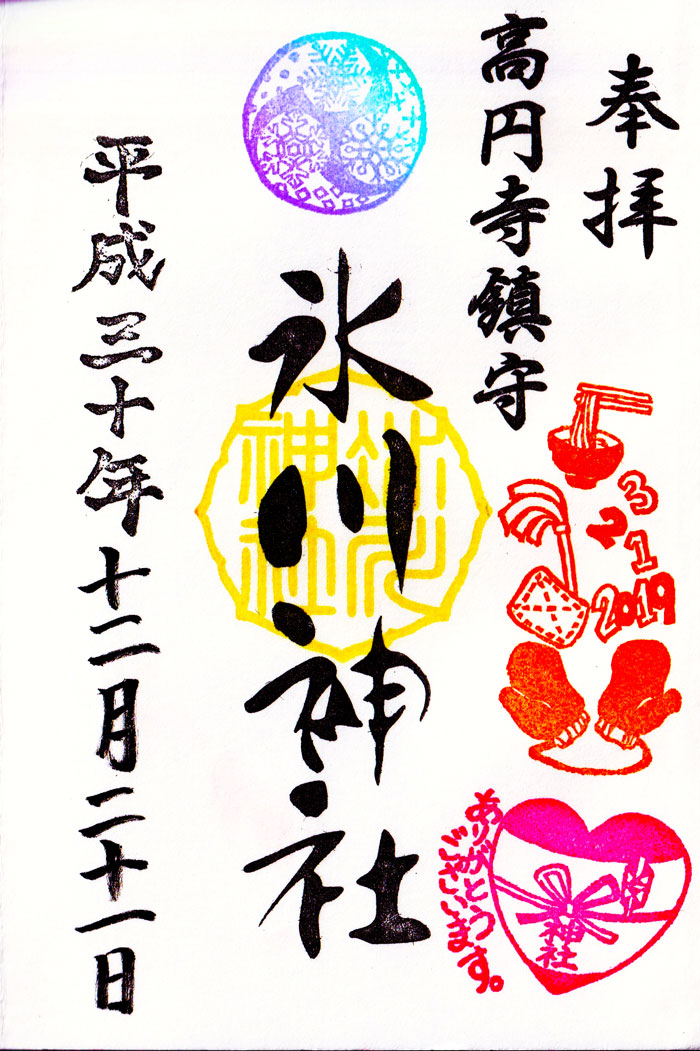 奉拝
高円寺鎮守
氷川神社
氷川
神社
平成三十年十二月二十一日
3
2
1
2019
ありがとう
ございます。
神社